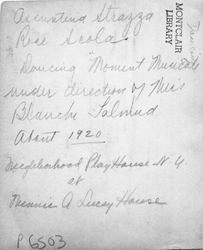 Assunting Strazza
Rose Scola
Dancing "Moment Musicale
under direction of Miss
Blanche Talmud
About 1920
Neighborhood PlayHouse N.Y.
at
Minnie A Lucey House
P6503
MONTCLAIR
LIBRARY